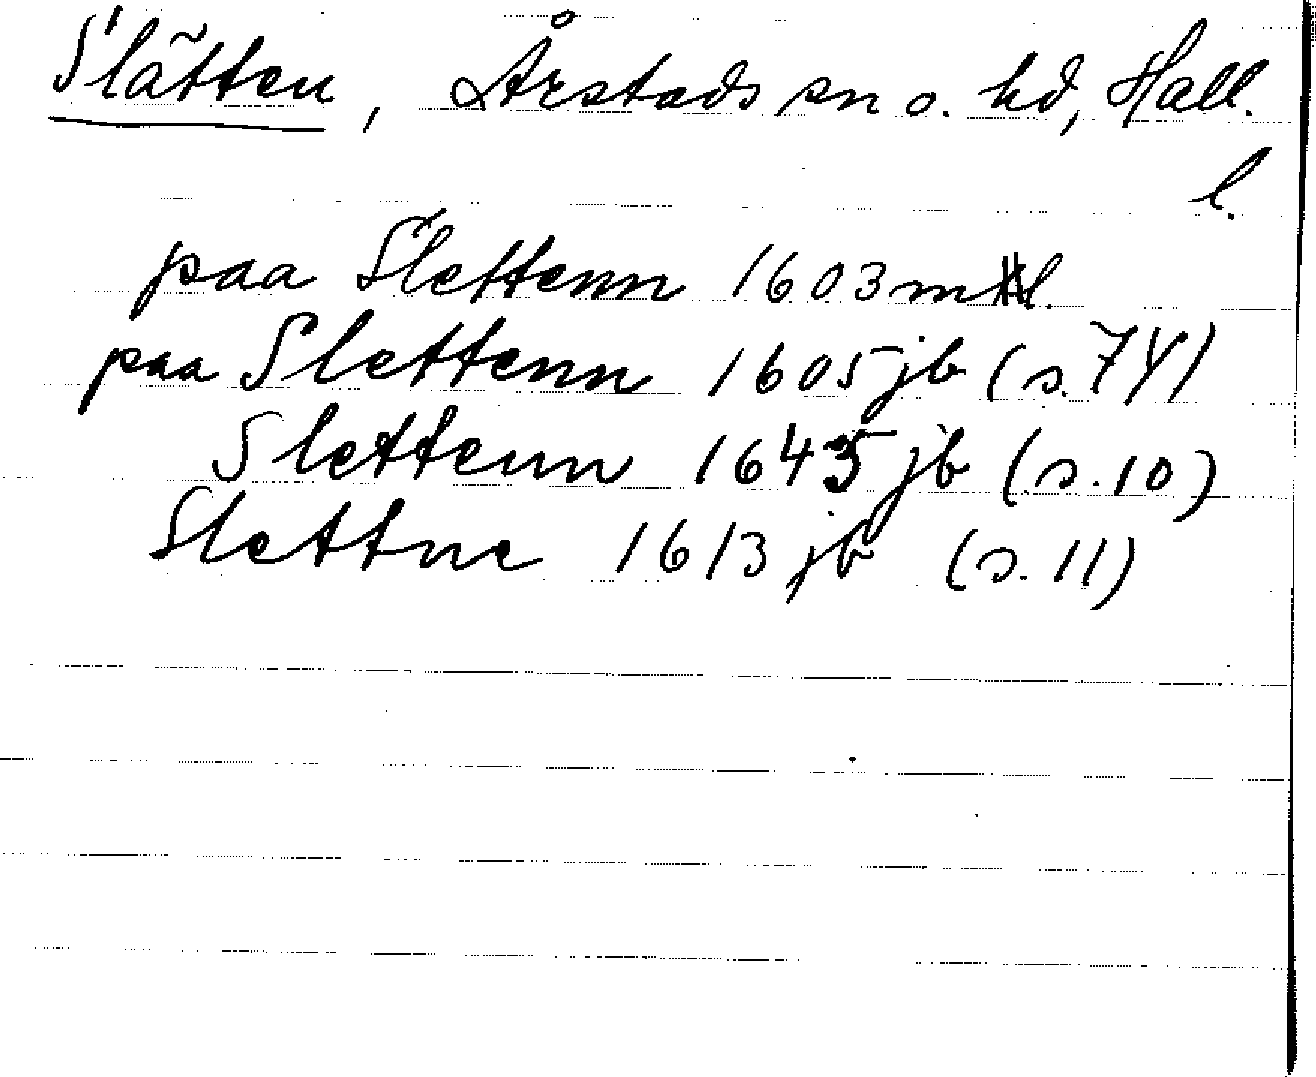 Slätten, Årstads sn o. hd, Hall.
l.
paa Slettenn 1603 ml.
paa Slettenn 1605 jb (s. 74)
Slettenn 1645 jb (s. 10)
Slettne 1613 jb (s. 11)